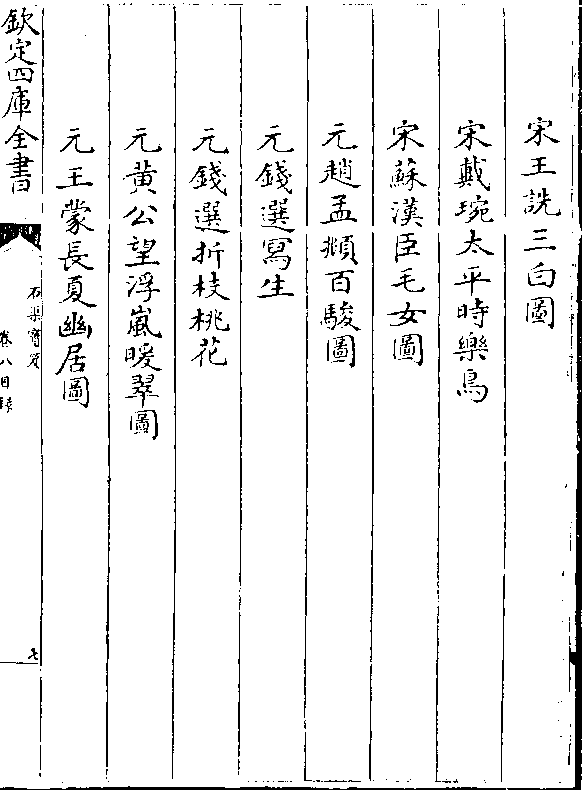 宋王詵三白圖
宋戴琬太平時樂鳥
宋蘇漢臣毛女圖
元趙孟頫百駿圖
元錢選寫生
元錢選折枝桃花
元黃公望浮嵐暖翠圖
元王蒙長夏幽居圖
欽定四庫全書
石渠寶笈
卷八目錄
七